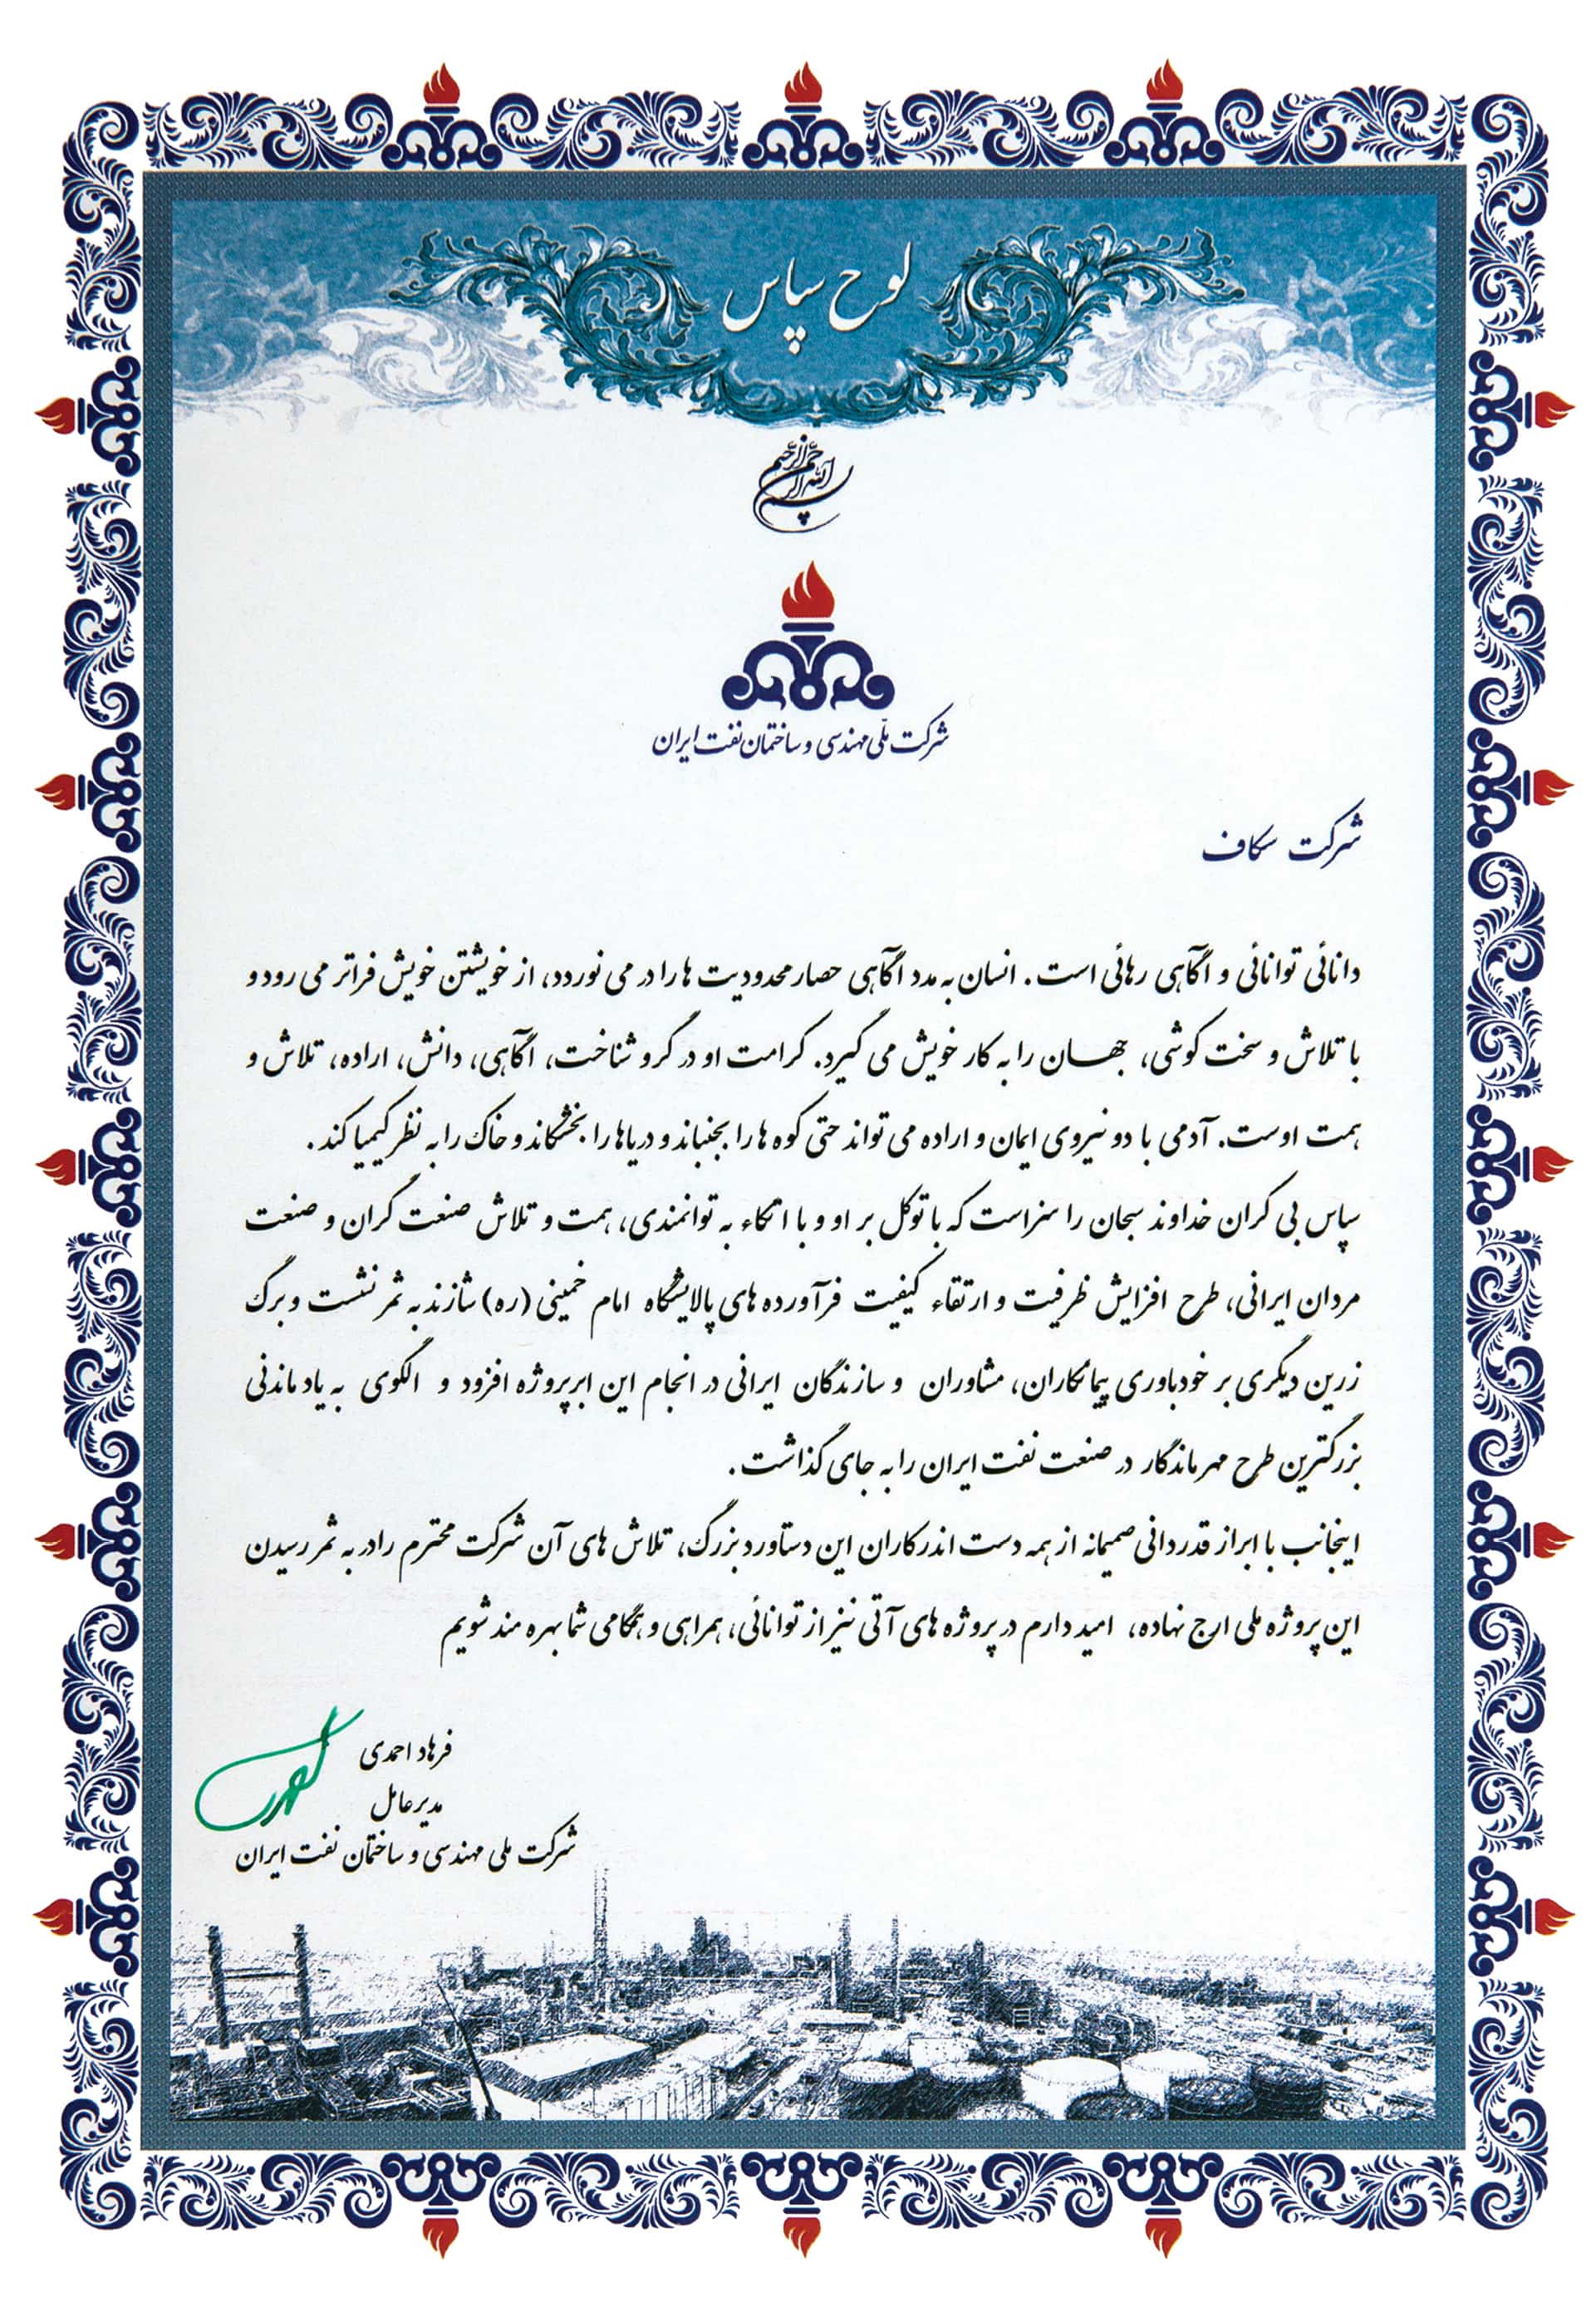 لوح سپاس
بسم الله الرحمن الرحیم
شرکت ملّی مهندسی و ساختمان نفت ایران
شرکت سکاف
دانائی توانائی و آگاهی رهائی است. انسان به مدد آگاهی حصار محدودیت ها را در می نوردد، از خویشتن خویش فراتر می رود و
با تلاش و سخت کوشی، جهان را به کار خویش می گیرد. کرامت او در گرو شناخت، آگاهی، دانش، اراده، تلاش و
همت اوست. آدمی با دو نیروی ایمان و اراده می تواند حتی کوه ها را بجنباند و دریاها را بخشکاند و خاک را به نظر کیمیا کند.
سپاس بی کران خداوند سبحان را سزاست که با توکل بر او و با اتکاء به توانمندی، همت و تلاش صنعت گران و صنعت
مردان ایرانی، طرح افزایش ظرفیت و ارتقاء کیفیت فرآورده های پالایشگاه امام خمینی (ره) شازند به ثمر نشست و برگ
زرین دیگری بر خودباوری پیمانکاران، مشاوران و سازندگان ایرانی در انجام این ابرپروژه افزود و الگوی به یاد ماندنی
بزرگترین طرح مهر ماندگار در صنعت نفت ایران را به جای گذاشت.
اینجانب با ابراز قدردانی صمیمانه از همه دست اندرکاران این دستاورد بزرگ، تلاش های آن شرکت محترم را در به ثمر رسیدن
این پروژه ملی ارج نهاده، امید دارم در پروژه های آتی نیز از توانائی، همراهی و همگامی شما بهره مند شویم
فرهاد احمدی
مدیرعامل
شرکت ملی مهندسی و ساختمان نفت ایران